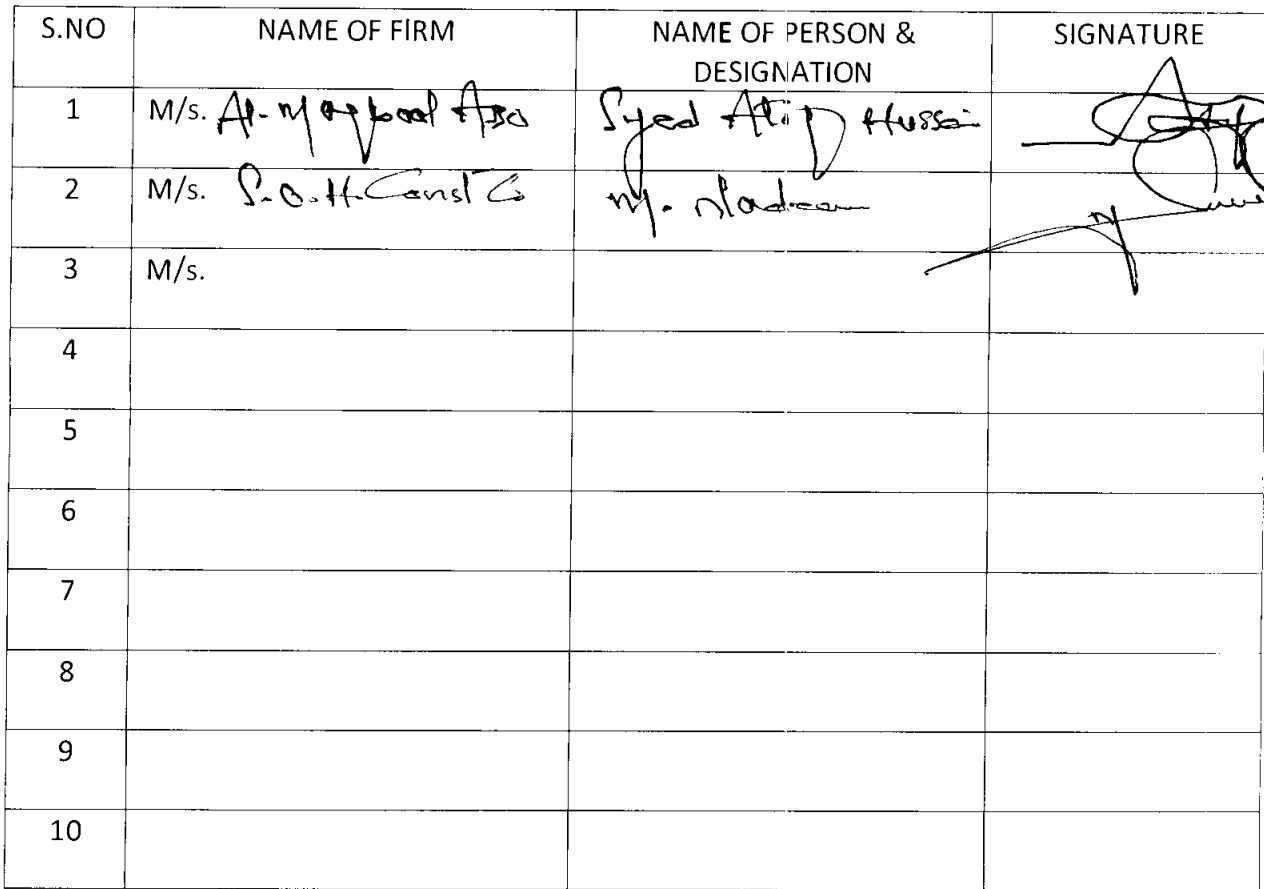 S.NO NAME OF FIRM NAME OF PERSON & SIGNATURE
DESIGNATION
1 M/s. Al-Maqbool Asso Syed Atiq Hussain
2 M/s. S.O.H. Const Co M. Nadeem
3 M/s.
4
5
6
7
8
9
10